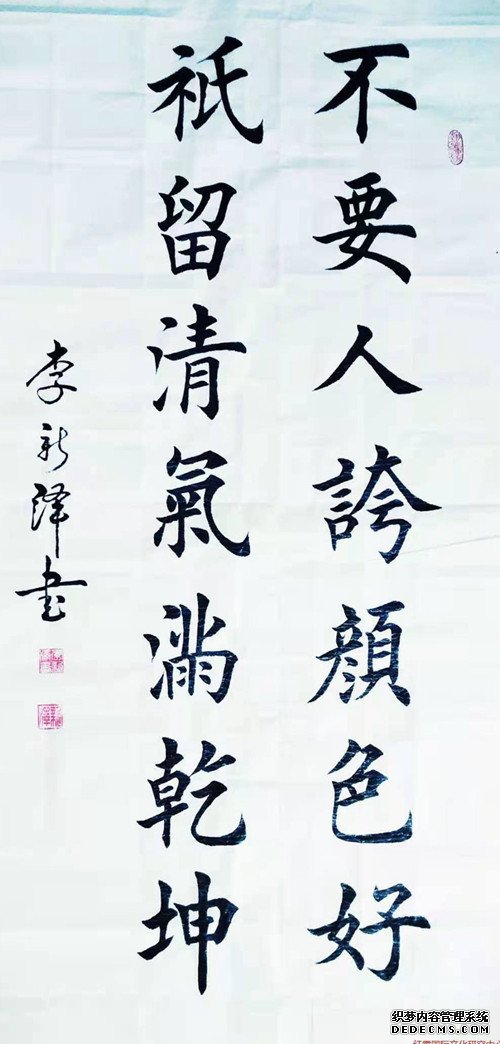 不要人誇顔色好
祇留清氣滿乾坤
李新泽书
织梦内容管理系统
DEDECMS.COM